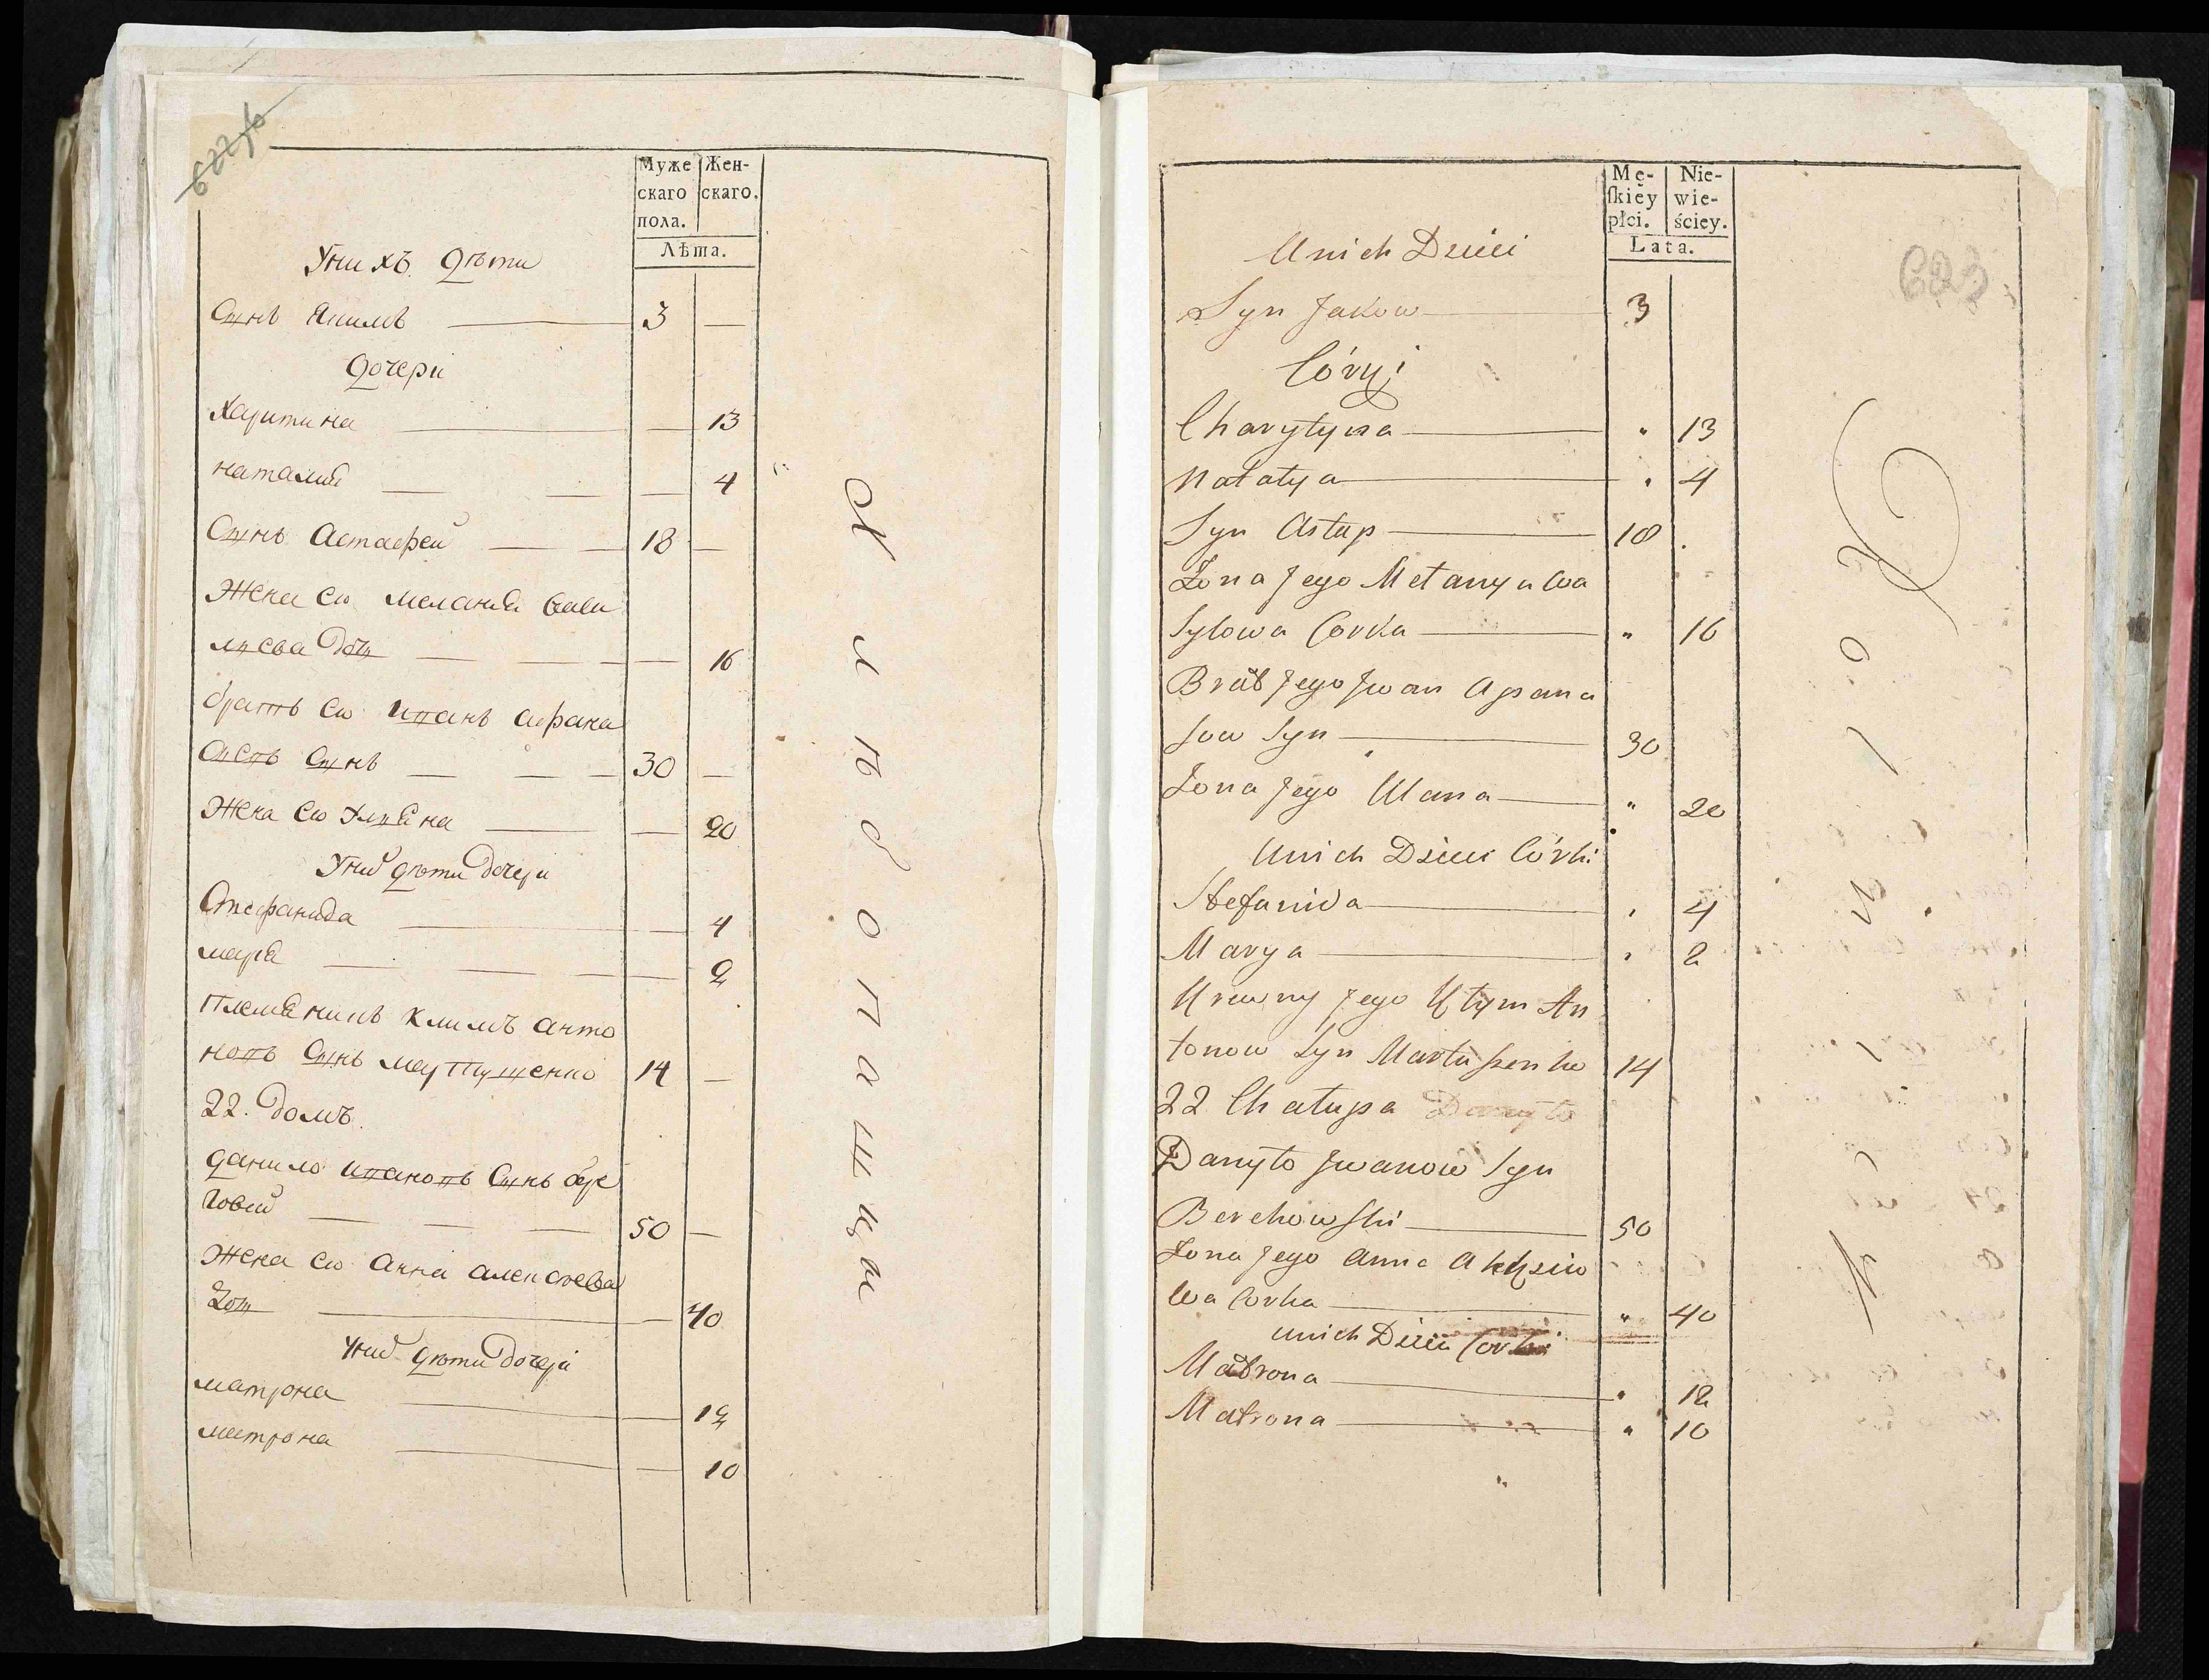 622 об
Муже
скаго
пола.
Жен-
скаго.
Лѣта.
У них дѣти
Сынъ Якимъ 3
дочери
Харитина 13
наталия 4
Сынъ Астафей 18
Жена ево мелания Сави
льева дочь 16
братъ ево иванъ афана
сьевъ сынъ 30
Жена ево ульяна 20
У них дѣти дочери
Стефанида 4
маря 2
племяникъ климъ анто
новъ сынъ мартышенко 14
22. домъ
данило ивановъ сынъ бер
ховей 50
Жена ево анна алексѣева
дочь 40
У них дѣти дочери
матрона 12
матрона 10
Хлѣбопашцы
Mę-
ſkiey
płci.
Nie-
wie-
ściey.
Lata.
623
Unich Dzieci
Syn Jakow 3
Córki
Charytyna " 13
Natalya " 4
Syn Astap 18
Żona Jego Melanyu Wa
Sylowa Corka " 16
Brat Jego Iwan Apana
sow Syn 30
Żona Jego Ulana " 20
Unich Dzieci Córki
Stefanida " 4
Marya " 2
Krewny Jego Klym An
tonow Syn Martuszenko 14
22 Chałupa Danyło
Danyło Iwanow Syn
Berchowski 50
Żona Jego Anna Alexiew
Wa Corka " 40
Unich Dzieci Corki
Matrona " 12
Matrona " 10
Rolnik